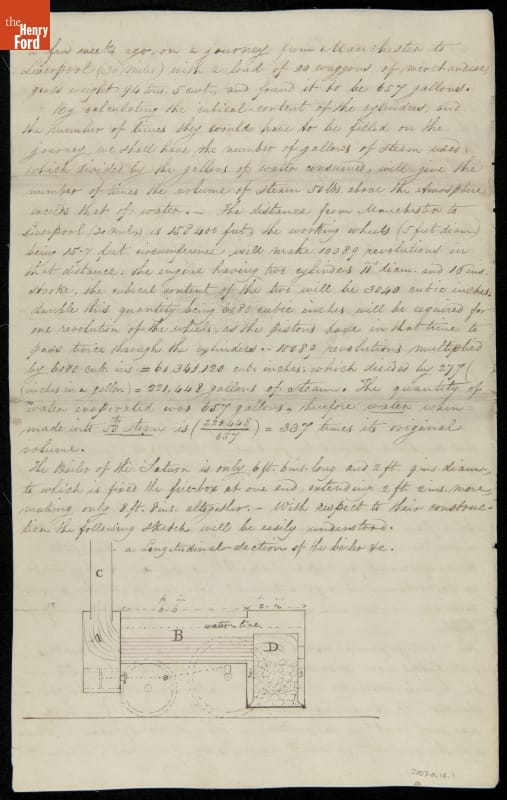 the
Henry
Ford
a few weeks ago, on a journey from Manchester to
Liverpool (30 miles) with a load of 20 waggons, of merchandise,
gross weight 94 tons, 5 cwt., and found it to be 657 gallons.
By calculating the cubical content of the cylinders, and
the number of times they would have to be filled on the
journey we shall have the number of gallons of steam used;
which divided by the gallons of water consumed, will give the
number of times the volume of steam 50 lbs. above the atmosphere
exceeds that of water. — The distance from Manchester to
Liverpool, 30 miles, is 158400 feet, the working wheels (5 feet diam.)
being 15.7 feet circumference will make 10089 revolutions in
that distance. the engine having two cylinders 11 in diam. and 16 ins.
stroke, the cubical content of the two will be 3040 cubic inches.
double this quantity being 6080 cubic inches will be required for
one revolution of the wheels, as the pistons have in that time to
pass twice through the cylinders. — 10089 revolutions multiplied
by 6080 cub. ins. = 61,341,120 cub. inches, which divided by 277
(inches in a gallon) = 221,448 gallons of Steam. The quantity of
water evaporated was 657 gallons, therefore water when
made into 50 lb steam is (221,448/657) = 337 times its original
volume.
The Boiler of the Saturn is only 6 ft. 6 ins. long and 2 ft. 9 ins. diam.
to which is fixed the fire-box at one end, extending 2 ft. 2 ins. more,
making only 8 ft. 8 ins. altogether. — With respect to their construc-
tion the following sketch will be easily understood.
a Longitudinal-section of the boiler &c.
C
6. 6
2. 2
water-line
B
D
2009.0.16.1